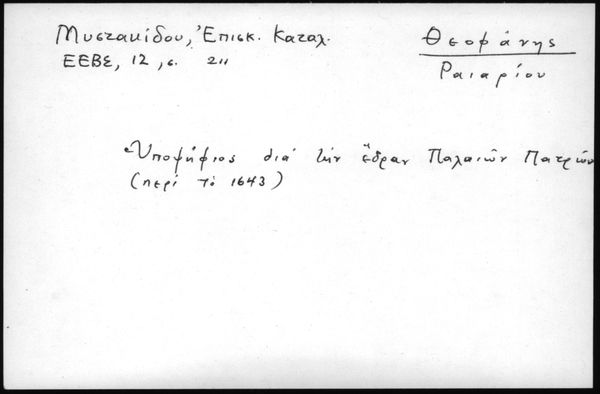 Μυστακίδου, Ἐπισκ. Καταλ.
ΕΕΒΣ, 12, σ. 211
Θεοφάνης
Ραιαρίου
Ὑποψήφιος διά τήν ἕδραν Παλαιῶν Πατρῶν
(περί τό 1643)